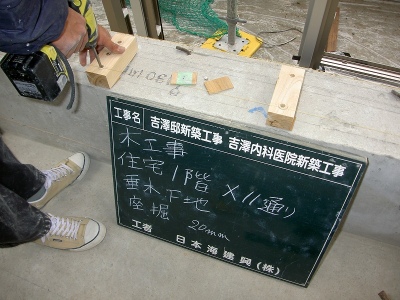 工事名 吉澤邸新築工事 吉澤内科医院新築工事
木工事
住宅1階 X11通り
垂木下地
座堀 20mm
工者 日本海建興(株)